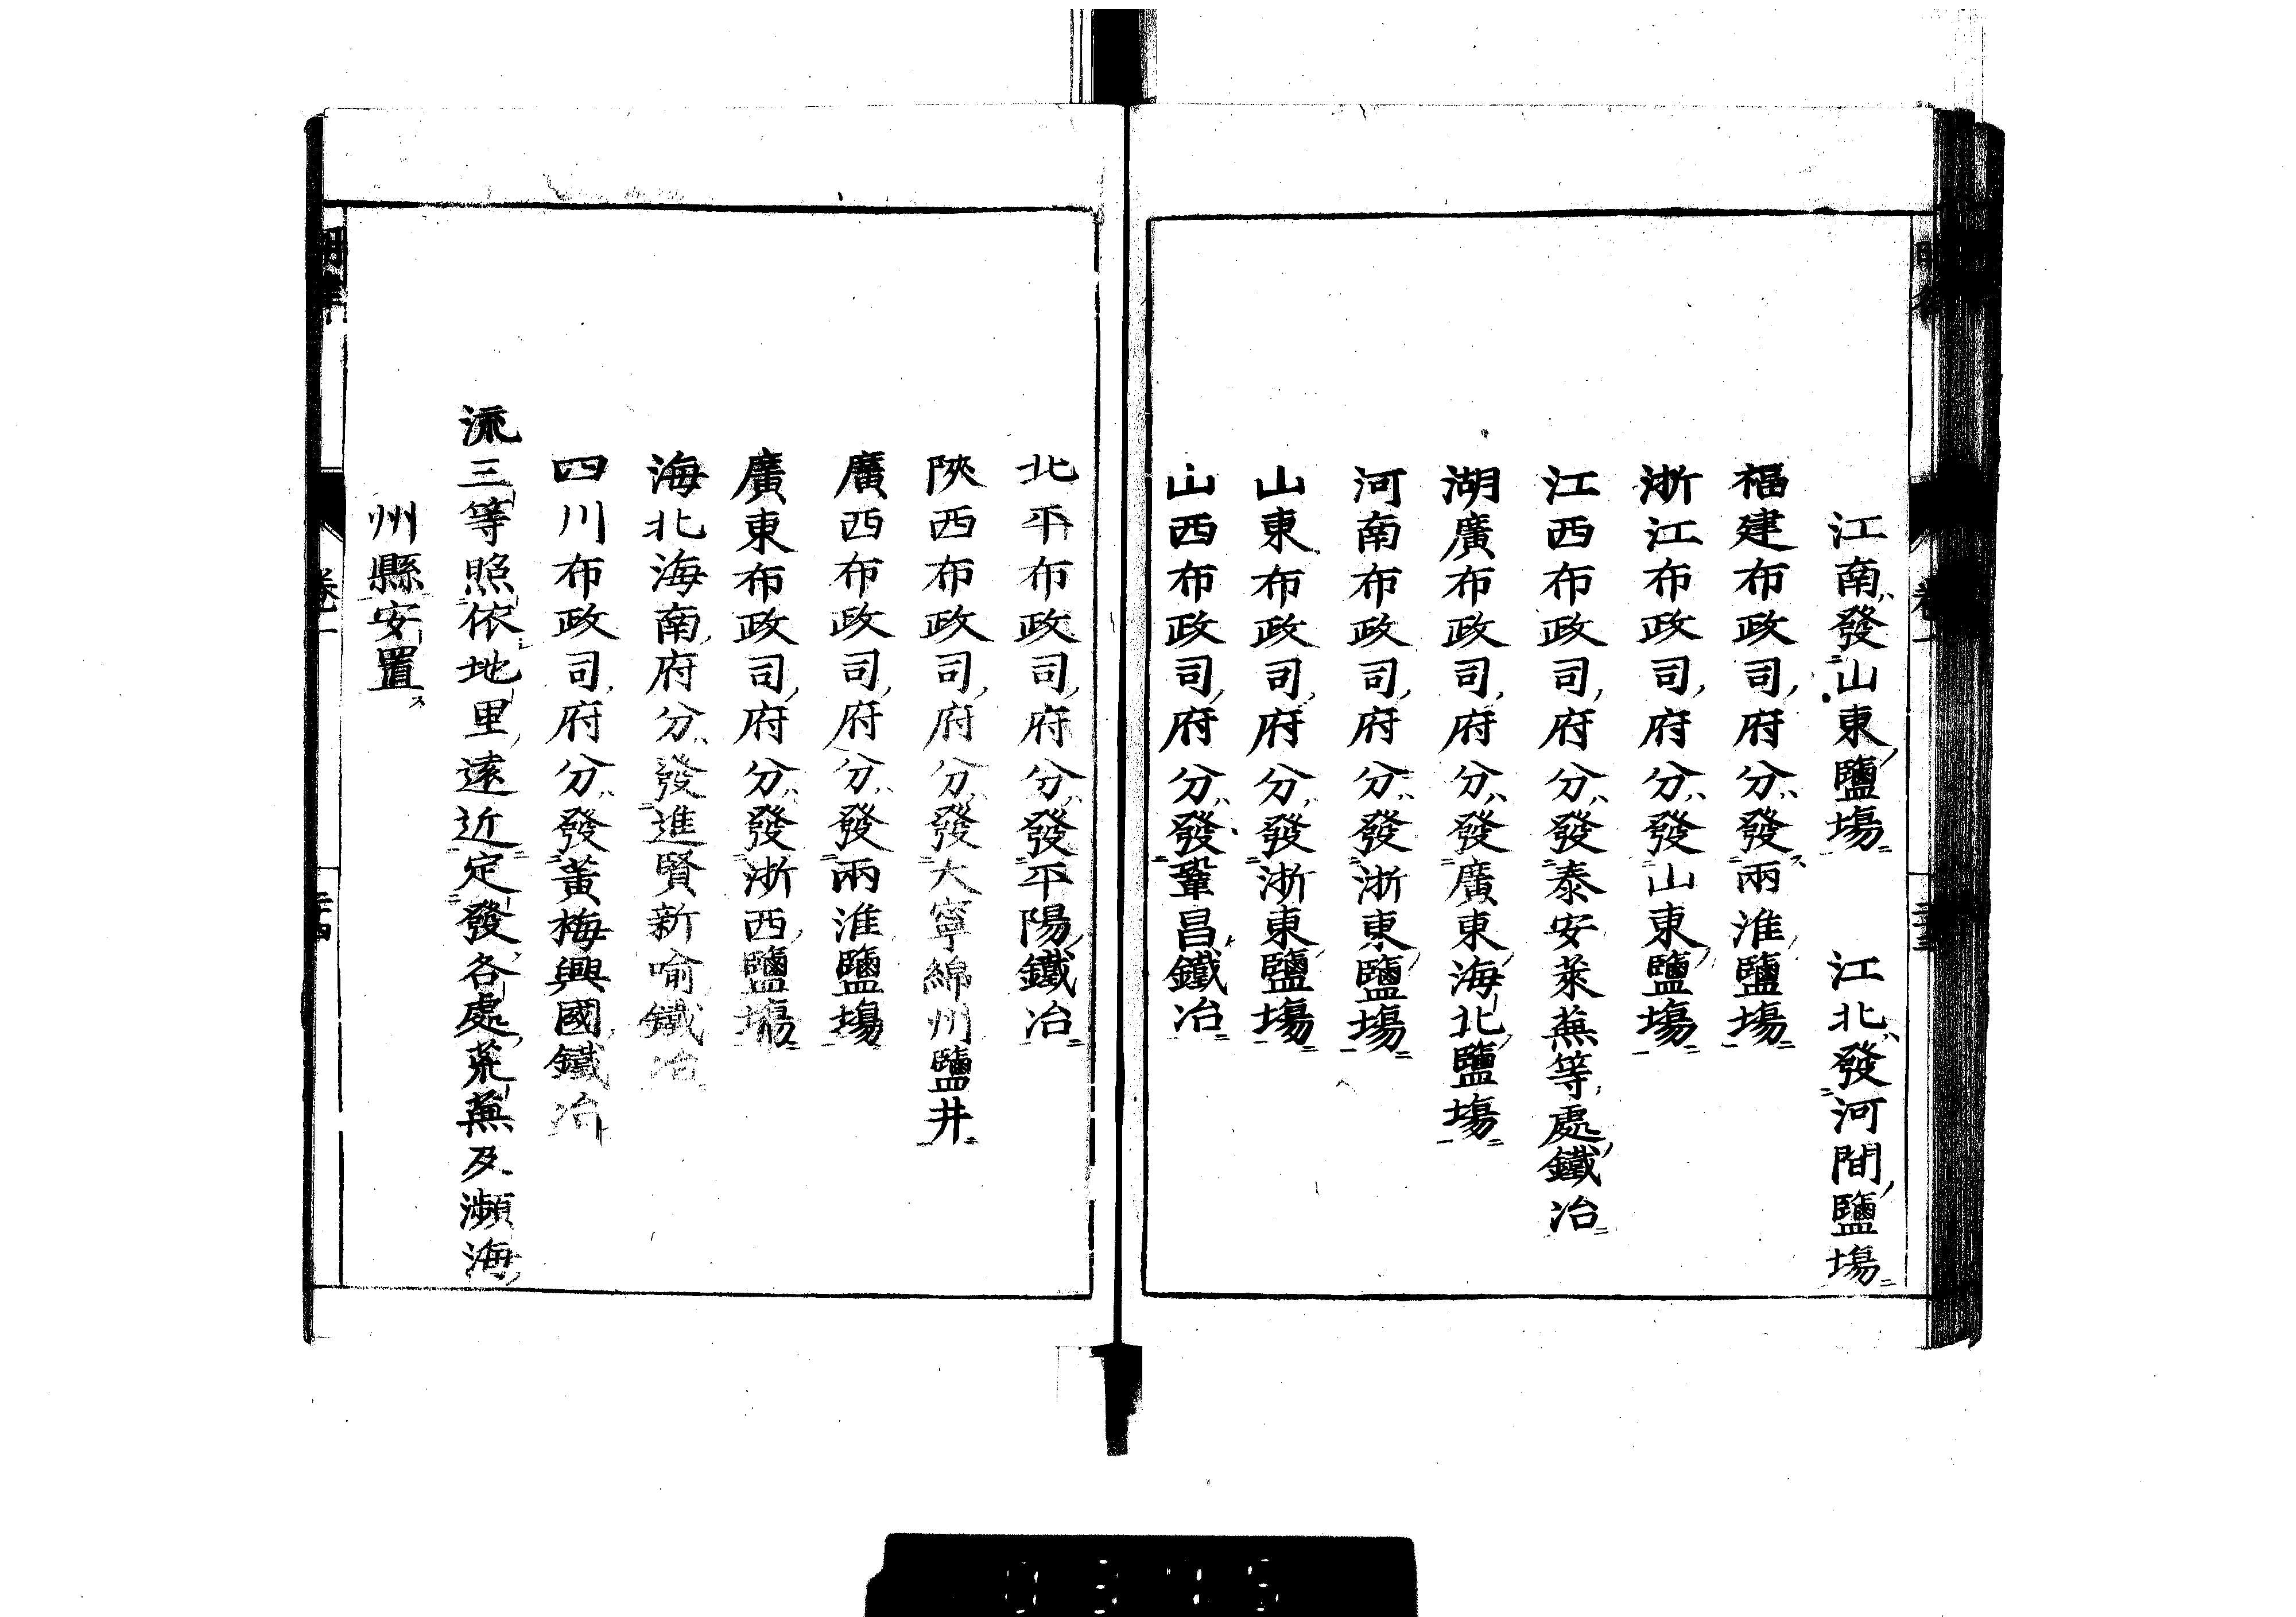 江南發山東鹽場　江北發河間鹽場
福建布政司府分發兩淮鹽場
浙江布政司府分發山東鹽場
江西布政司府分發泰安萊蕪等處鐵冶
湖廣布政司府分發廣東海北鹽場
河南布政司府分發浙東鹽場
山東布政司府分發浙東鹽場
山西布政司府分發鞏昌鐵冶
北平布政司府分發平陽鐵冶
陝西布政司府分發大寧綿州鹽井
廣西布政司府分發兩淮鹽場
廣東布政司府分發浙西鹽場
海北海南府分發進賢新喻鐵冶
四川布政司府分發黃梅興國鐵冶
流三等照依地里遠近定發各處荒蕪及瀕海
州縣安置
卷一